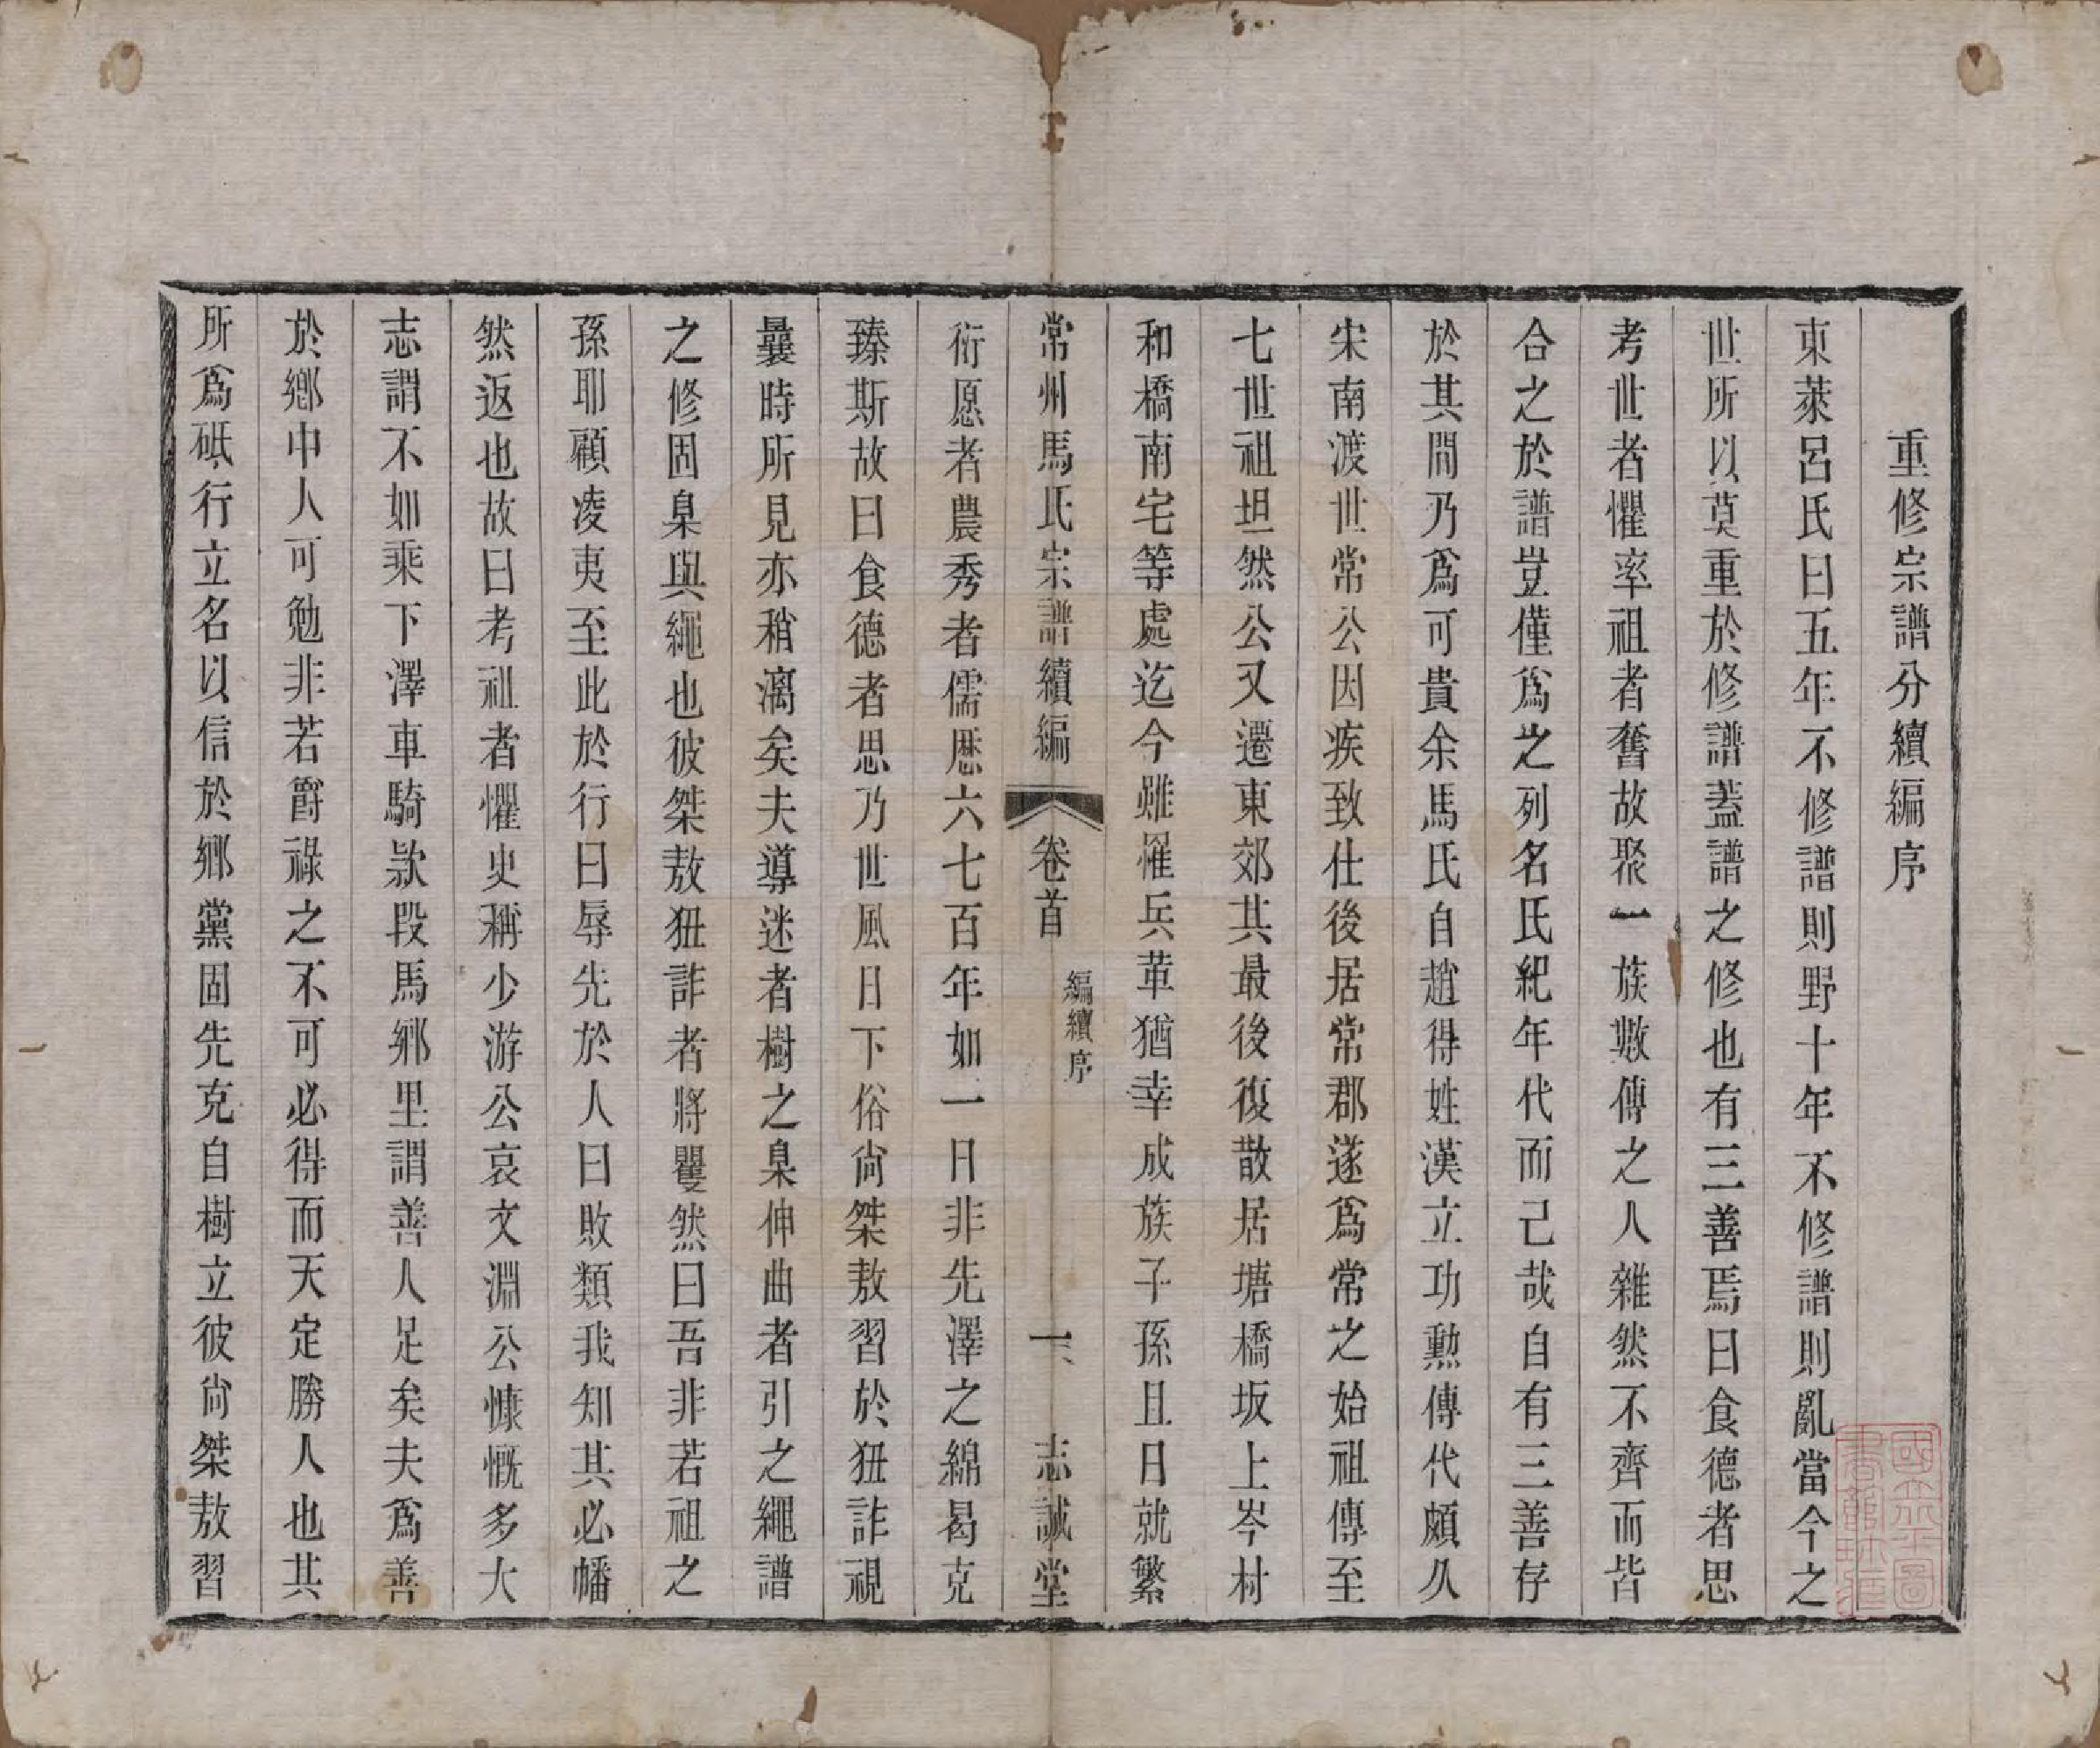 重修宗譜分續編序
東萊呂氏曰五年不修譜則野十年不修譜則亂當今之
世所以莫重於修譜蓋譜之修也有三善焉曰食德者思
考世者懼率祖者奮故聚一族數傳之人雜然不齊而皆
合之於譜豈僅爲之列名氏紀年代而己哉自有三善存
於其間乃爲可貴余馬氏自趙得姓漢立功勲傳代頗久
宋南渡世常公因疾致仕後居常郡遂爲常之始祖傳至
七世祖坦然公又遷東郊其最後復散居塘橋坂上岑村
和橋南宅等處迄今雖罹兵革猶幸成族子孫且日就繁
常州馬氏宗譜續編 卷首 編續序 一 志誠堂
衍愿者農秀者儒歴六七百年如一日非先澤之綿曷克
臻斯故曰食德者思乃世風日下俗尙桀敖習於狃詐視
曩時所見亦稍漓矣夫導迷者樹之臬伸曲者引之繩譜
之修固臬與繩也彼桀敖狃詐者將矍然曰吾非若祖之
孫耶顧凌夷至此於行曰辱先於人曰敗類我知其必幡
然返也故曰考祖者懼史稱少游公哀文淵公慷慨多大
志謂不如乘下澤車騎欵段馬鄉里謂善人足矣夫爲善
於鄉中人可勉非若爵祿之不可必得而天定勝人也其
所爲砥行立名以信於鄉黨固先克自樹立彼尙桀敖習
國立北平圖書館珍藏